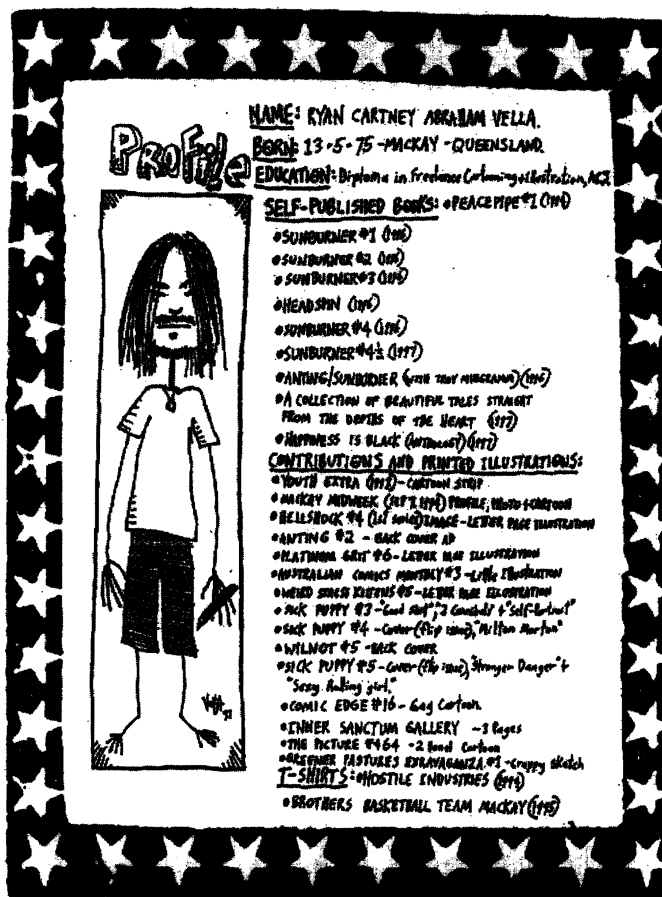 Profile
NAME: RYAN CARTNEY ABRAHAM VELLA.
BORN: 13-5-75-MACKAY-QUEENSLAND.
EDUCATION: Diploma in Freelance Cartooning & Illustration, ACI
SELF-PUBLISHED BOOKS: •PEACEPIPE #1
•SUNBURNER #1
•SUNBURNER #2
•SUNBURNER #3
•HEADSPIN (1996)
•SUNBURNER #4 (1996)
•SUNBURNER #4½ (1997)
•ANTING/SUNBURNER (WITH TROY) (1996)
•A COLLECTION OF BEAUTIFUL TALES STRAIGHT
FROM THE DEPTHS OF THE HEART (1997)
•HAPPINESS IS BLACK (ANTHOLOGY) (1997)
CONTRIBUTIONS AND PRINTED ILLUSTRATIONS:
•YOUTH EXTRA - CARTOON STRIP
•MACKAY MIDWEEK PROFILE, PHOTO + CARTOON
•HELLSHOCK #4 IMAGE - LETTER PAGE ILLUSTRATION
•ANTING #2 - BACK COVER AD
•PLATINUM GRIT #6 - LETTER PAGE ILLUSTRATION
•AUSTRALIAN COMICS MONTHLY #3 - Little Illustration
•WEIRD #5 - LETTER PAGE ILLUSTRATION
•SICK PUPPY #3 - "Self-Portrait"
•SICK PUPPY #4 - Cover (flip issue), "Milton Morton"
•WILNOT #5 - BACK COVER
•SICK PUPPY #5 - Cover (flip issue), "Stranger Danger" +
"Sexy girl."
•COMIC EDGE #16 - Gag Cartoon
•INNER SANCTUM GALLERY - 3 Pages
•THE PICTURE #464 - 2 Panel Cartoon
•GREENER PASTURES EXTRAVAGANZA #1 - Crappy Sketch
T-SHIRTS: •HOSTILE INDUSTRIES
•BROTHERS BASKETBALL TEAM MACKAY (1995)